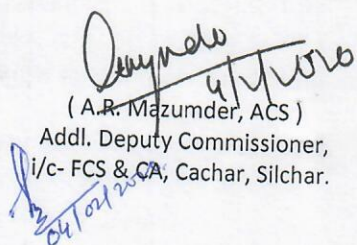 4/2/2020
( A.R. Mazumder, ACS )
Addl. Deputy Commissioner,
i/c- FCS & CA, Cachar, Silchar.
04/02/2020